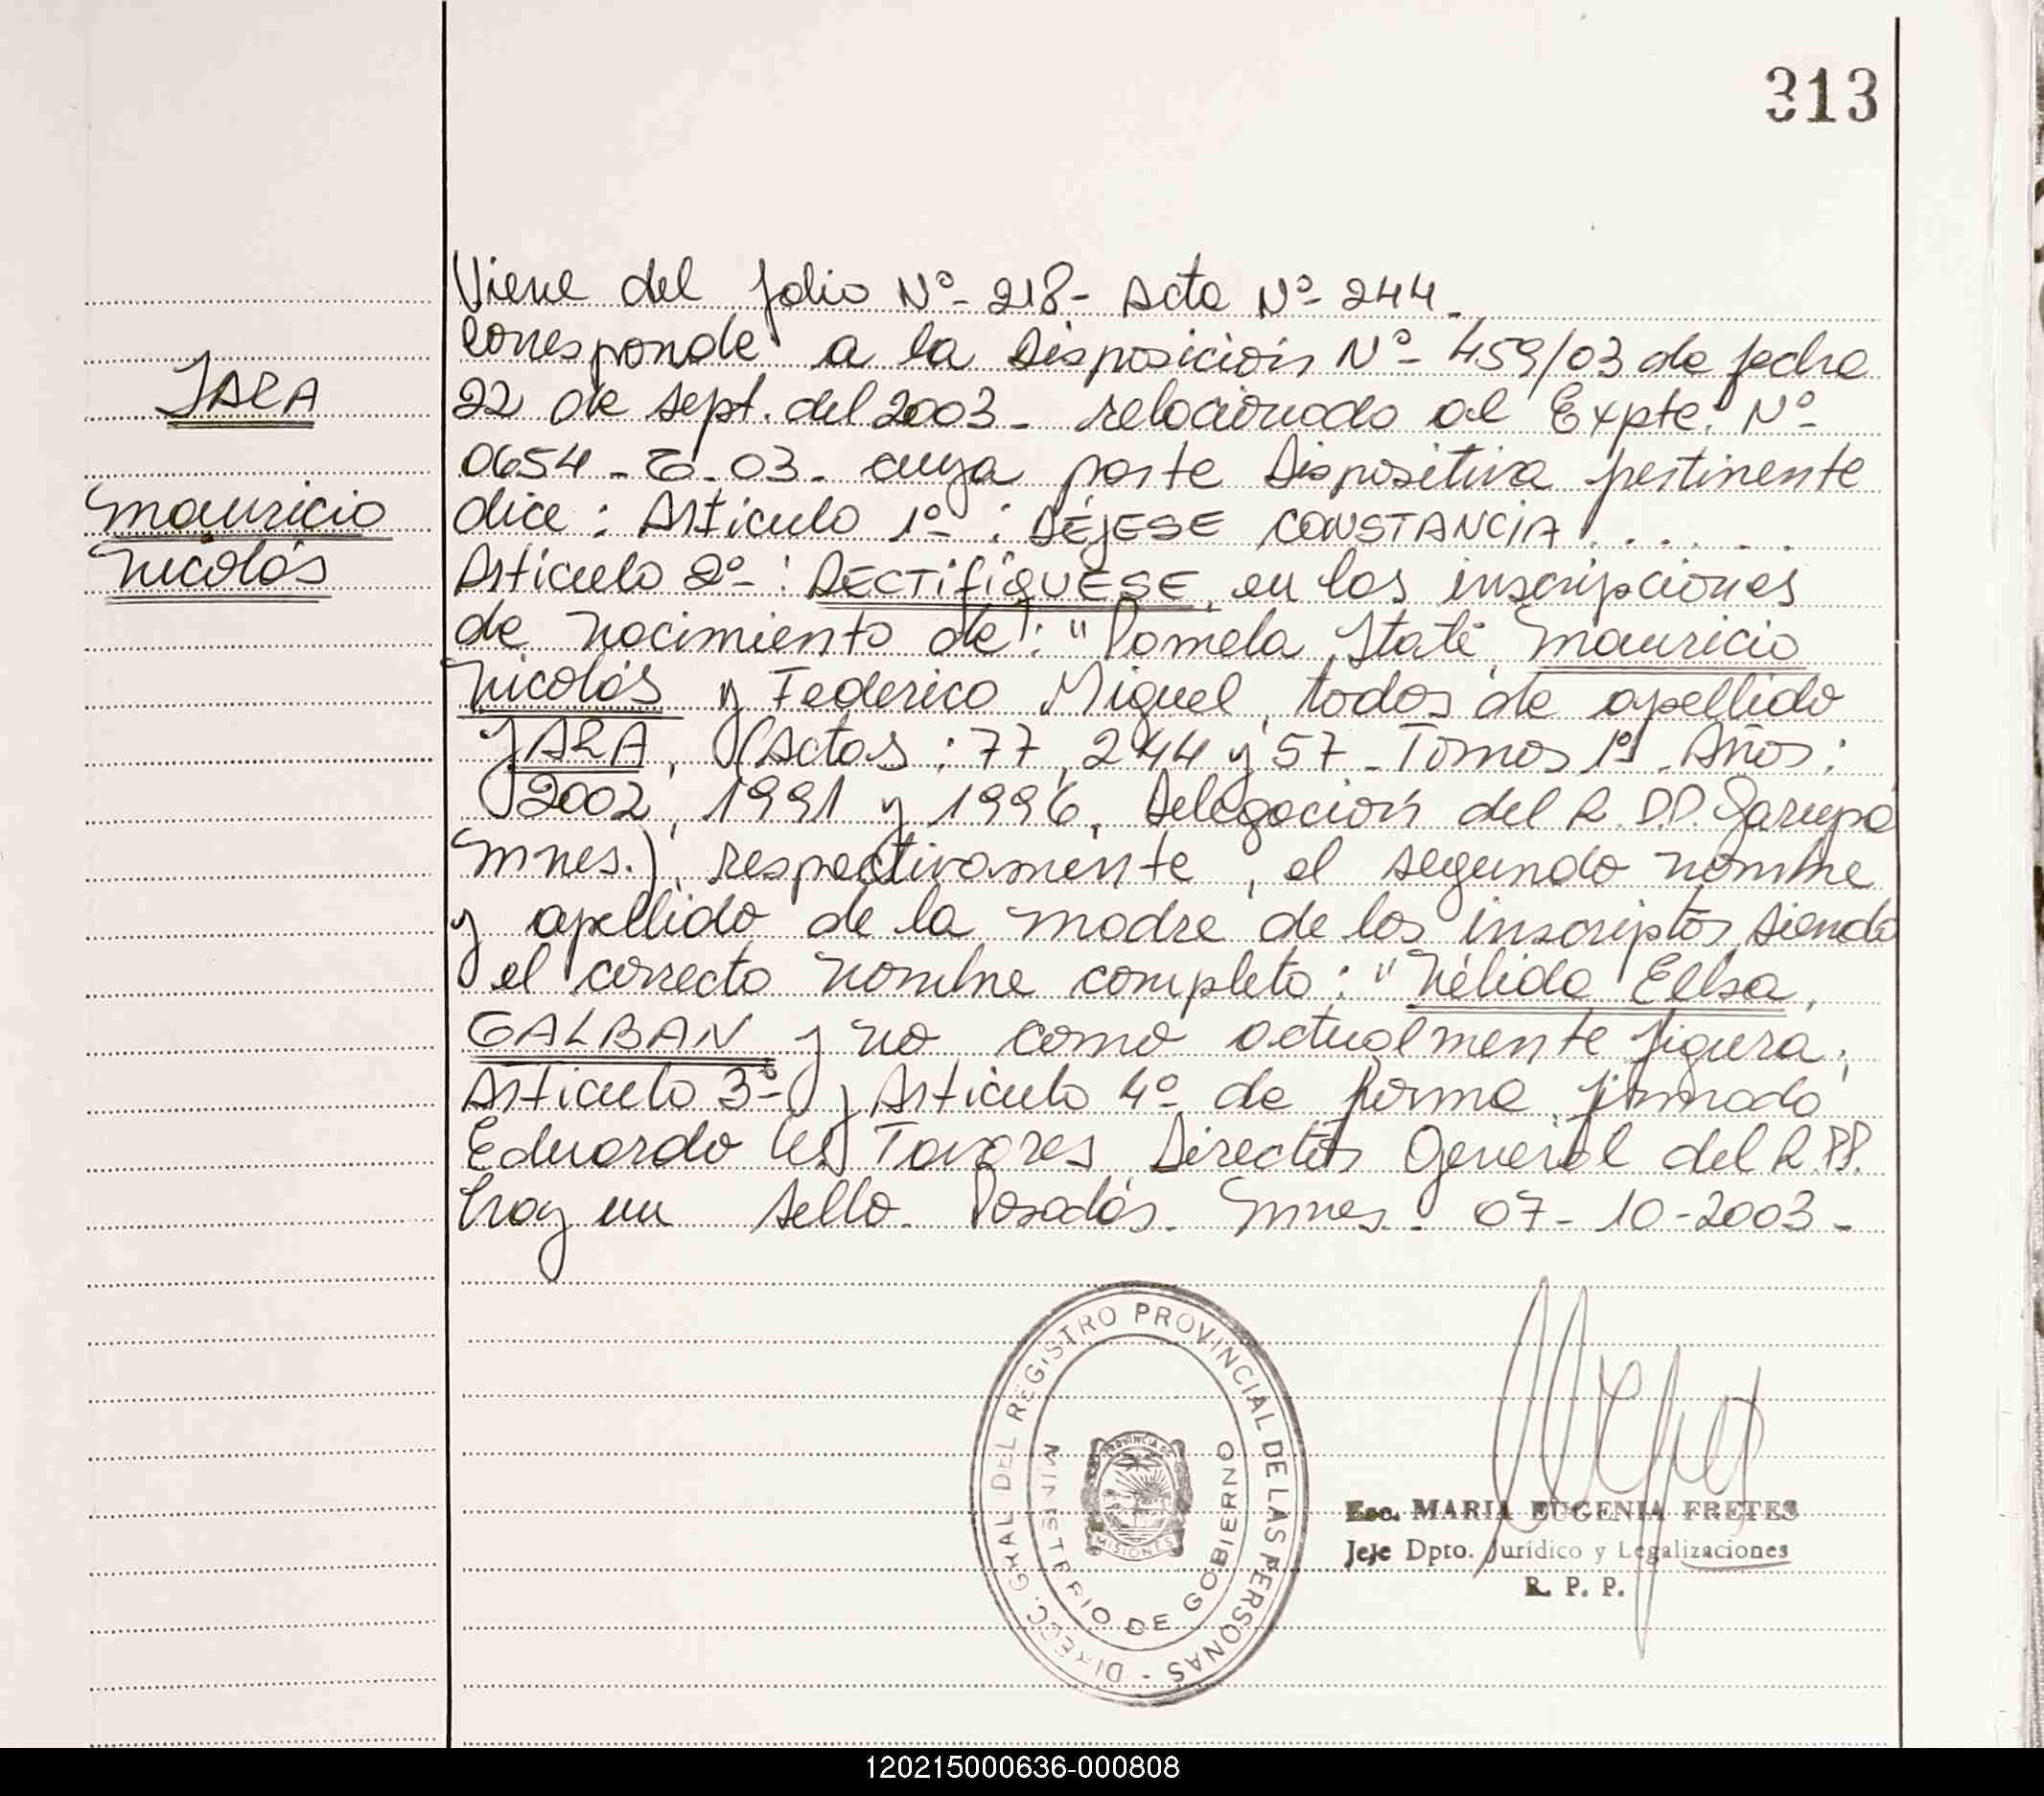 313
Viene del folio Nº- 218- Acta Nº- 244.
Corresponde a la Disposición Nº- 459/03 de fecha
JARA
22 de sept. del 2003- relacionado al Expte. Nº-
0654- -03- cuya parte Dispositiva pertinente
Mauricio
dice: Artículo 1º-: DÉJESE CONSTANCIA! . . . . . .
Nicolás
Artículo 2º-: RECTIFÍQUESE, en las inscripciones
de nacimiento de: "Pamela Itatí, Mauricio
Nicolás y Federico Miguel, todos de apellido
JARA, (Actas: 77, 244 y 57- Tomos 1º- Años:
2002, 1991 y 1996, Delegación del R.P.P. Garupá
Mnes.), respectivamente, el segundo nombre
y apellido de la madre de los inscriptos, siendo
el correcto nombre completo: "Nélida Elba,
GALBAN y no como actualmente figura;
Artículo 3º- y Artículo 4º de forma, firmado
Eduardo Tavares Director General del R.PP.
hay un sello. Posadas- Mnes- 07-10-2003-
DIRECC. GRAL DEL REGISTRO PROVINCIAL DE LAS PERSONAS -
MINISTERIO DE GOBIERNO
PROVINCIA DE
MISIONES
Esc. MARIA EUGENIA FRETES
Jefe Dpto. Jurídico y Legalizaciones
R. P. P.
120215000636-000808